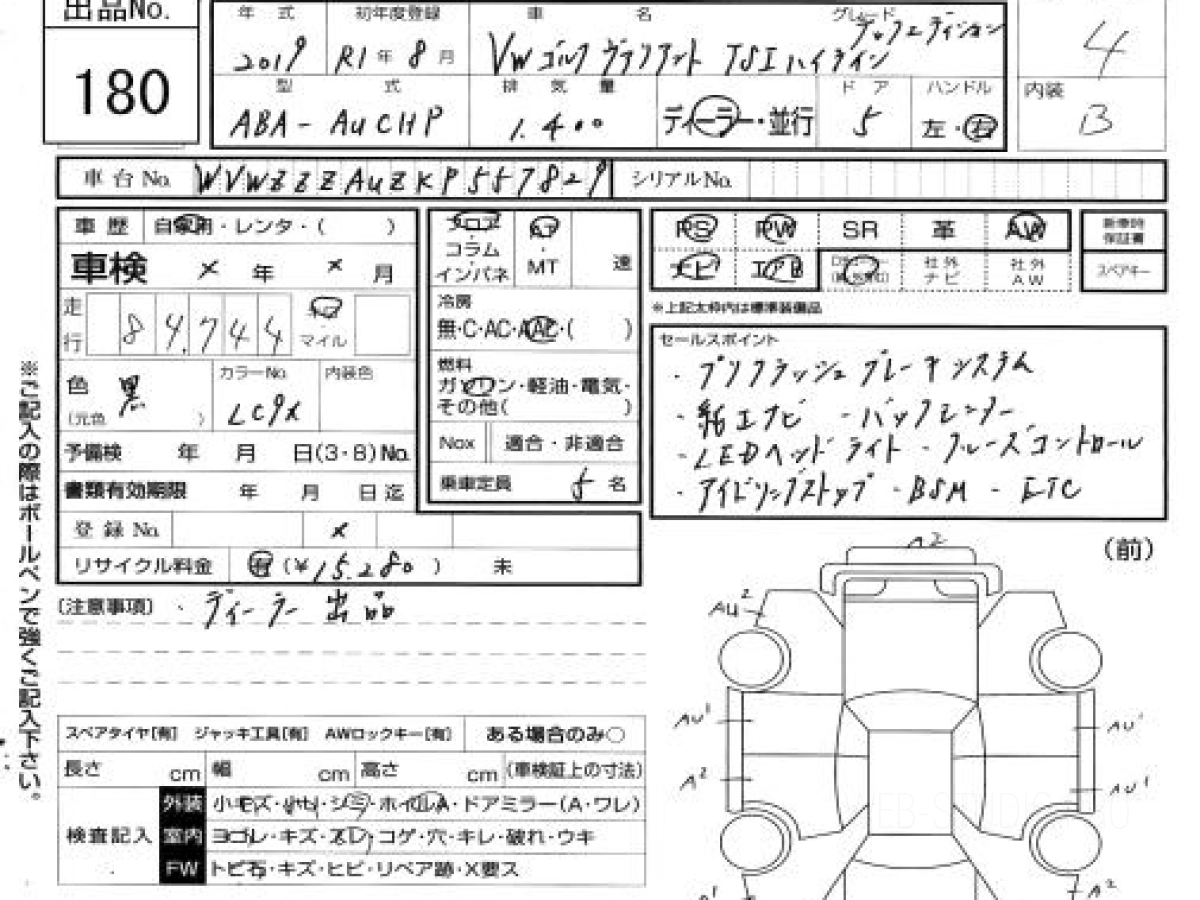 出品No.
180
年式 初年度登録 車名 グレード
テックエディション
2019 R1年8月 VWゴルフ ヴァリアント TSIハイライン
型式 排気量 ドア ハンドル
ABA-AUCHP 1.400 ディーラー・並行 5 左・右
4
内装
B
車台No. WVWZZZAUZKP557829 シリアルNo.
車歴 自家用・レンタ・( )
車検 × 年 × 月
走行 84,744 マイル
色 黒
(元色 )
カラーNo. LC9X
内装色
予備検 年 月 日(3・8)No.
書類有効期限 年 月 日迄
登録No. ×
リサイクル料金 有(¥15,280) 未
フロア
コラム
インパネ
AT
・
MT
速
冷房
無・C・AC・AAC・( )
燃料
ガソリン・軽油・電気・
その他( )
Nox 適合・非適合
乗車定員 5名
PS PW SR 革 AW
ナビ エアB 社外ナビ 社外AW
新車時保証書
スペアキー
※上記太枠内は標準装備品
セールスポイント
・プリクラッシュブレーキシステム
・純正ナビ ・バックモニター
・LEDヘッドライト ・クルーズコントロール
・アイドリングストップ ・BSM ・ETC
(注意事項) ・ディーラー出品
※ご記入の際はボールペンで強くご記入下さい。
スペアタイヤ[有] ジャッキ工具[有] AWロックキー[有] ある場合のみ○
長さ cm 幅 cm 高さ cm (車検証上の寸法)
検査記入
外装 小キズ・ハヤリ・シミ・ホイルA・ドアミラー(A・ワレ)
室内 ヨゴレ・キズ・スレ・コゲ・穴・キレ・破れ・ウキ
FW トビ石・キズ・ヒビ・リペア跡・X要ス
(前)
A2
AU2
AU1 AU1
A2 AU1
A2